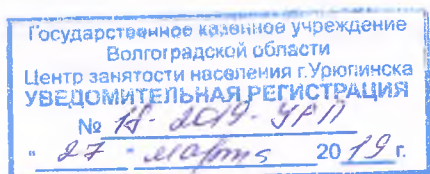 Государственное казенное учреждение
Волгоградской области
Центр занятости населения г.Урюпинска
УВЕДОМИТЕЛЬНАЯ РЕГИСТРАЦИЯ
№ 18-2019-УРП
" 27 " марта 2019 г.